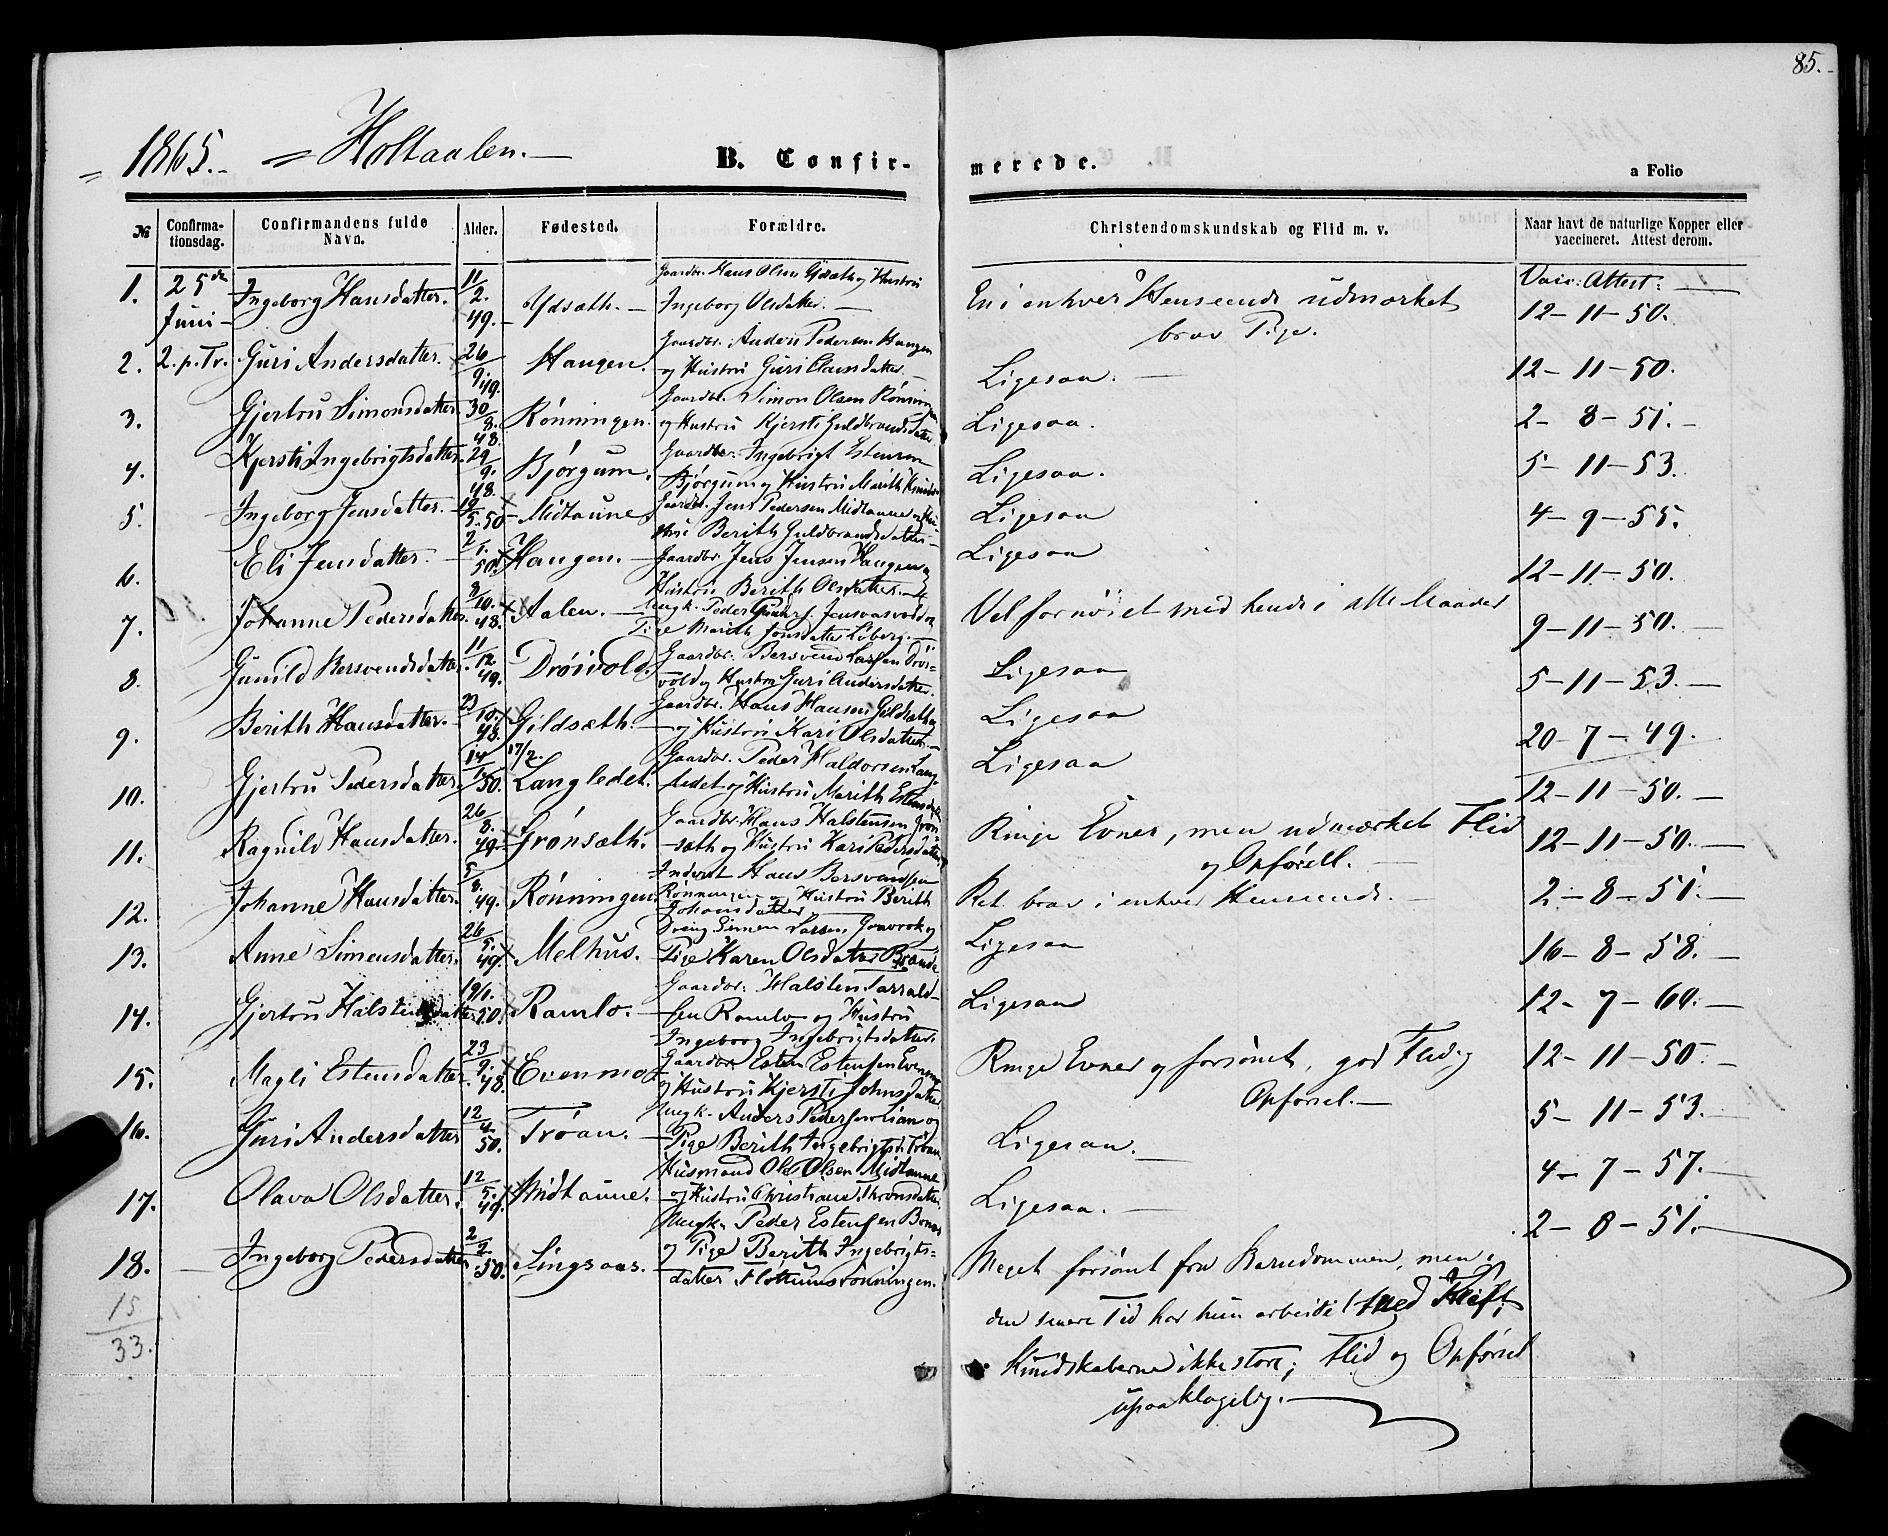 85.
1865. Holtaalen.
B. Confir-
merede.
a Folio
№ Confirma-tionsdag. Confirmandens fulde Navn. Alder. Fødested. Forældre.
Christendomskundskab og Flid m. v.
Naar havt de naturlige Kopper eller vaccineret. Attest derom.
1. 25de Juni Ingeborg Hansdatter. 11/2. 49. Ydsæth. Gaardbr. Hans Olsen Ydsæth og Hustru
Ingeborg Olsdatter.
En i enhver Henseende udmærket
brav Pige.
Vacc: Attest:
12-11-50.
2. 2. p. Tr. Guri Andersdatter. 26/9. 49. Haugen. Gaardbr. Anders Pedersen Haugen
og Hustru Guri Clausdatter.
Ligesaa.
12-11-50.
3. Gjertru Simonsdatter. 30/8. 48. Rønningen. Gaardbr. Simon Olsen Rønningen
og Hustru Kjersti Guldbrandsdatter.
Ligesaa.
2-8-51.
4. Kjersti Ingebrigtsdatter. 29/9. 48. Bjørgum. Gaardbr. Ingebrigt Estensen
Bjørgum og Hustru Marith
Ligesaa.
5-11-53.
5. Ingeborg Jensdatter. 19/5. 50 Midtaune Gaardbr. Jens Pedersen Midtaune og Hu-
stru Berith Guldbrandsdatter.
Ligesaa
4-9-55.
6. Eli Jensdatter. 2/1. 50. Haugen. Gaardbr. Jens Jensen Haugen og
Hustru Berith Olsdatter.
Ligesaa
12-11-50.
7. Johanne Pedersdatter. 8/10. 48. Aalen. Ungk. Peder Jensvasvolden
Pige Marith Jonsdatter Løberg.
Vel fornøiet med hende i alle Maader
9-11-50.
8. Gunild Bersvendsdatter 11/12. 49. Drøivold. Gaardbr. Bersvend Larsen Drøi-
vold og Hustru Guri Andersdatter.
Ligesaa
5-11-53.
9. Berith Hansdatter. 23/10. 48. Gildsæth. Gaardbr. Hans Hansen Gildsæth
og Hustru Kari Olsdatter.
Ligesaa
20-7-49.
10. Gjertru Pedersdatter. 14/1. 50. 17/2. Langledet. Gaardbr. Peder Haldorsen Lang-
ledet og Hustru Marith Estensdatter
Ligesaa
12-11-50.
11. Ragnild Hansdatter. 26/8. 49. Grønsæth. Gaardbr. Hans Halstensen Grøn-
sæth og Hustru Kari Pedersdatter
Ringe Evner, men udmærket Flid
og Opførsel.
12-11-50.
12. Johanne Hansdatter. 5/8. 49. Rønningen. Inderst Hans Bersvendsen
Rønningen og Hustru Berith
Johansdatter
Ret brav i enhver Henseende.
2-8-51.
13. Anne Simensdatter. 26/5. 49. Melhus. Dreng Simen Larsen Graavrok og
Pige Karen Olsdatter
Ligesaa
16-8-58.
14. Gjertru Halstensdatter 19/1. 50. Ramlo. Gaardbr. Halsten Tarrald-
sen Ramlo og Hustru
Ingeborg Ingebrigtsdatter.
Ligesaa
12-7-60.
15. Magli Estensdatter. 23/9. 48. Evenmo Gaardbr. Esten Estensen Evenmo
og Hustru Kjersti Johnsdatter.
Ringe Evner og forsømt, god Flid og
Opførsel.
12-11-50.
16. Guri Andersdatter 12/4. 50. Trøan. Ungk. Anders Pedersen Lian og
Pige Berith Ingebrigtsd. Trøan
Ligesaa.
5-11-53.
17. Olava Olsdatter. 12/5. 49. Midtaune. Husmand Ole Olsen Midtaune
og Hustru Christiane Thronsdatter.
Ligesaa.
4-7-57.
18. Ingeborg Pedersdatter 2/2. 50. Singsaas. Ungk. Peder Estensen
og Pige Berith Ingebrigts-
datter Flottumsrønningen.
Meget forsømt fra Barndommen, men i
den senere Tid har hun arbeidet med Kraft;
Kundskaberne ikke store; Flid og Opførsel
upaaklagelig.
2-8-51.
15
33.